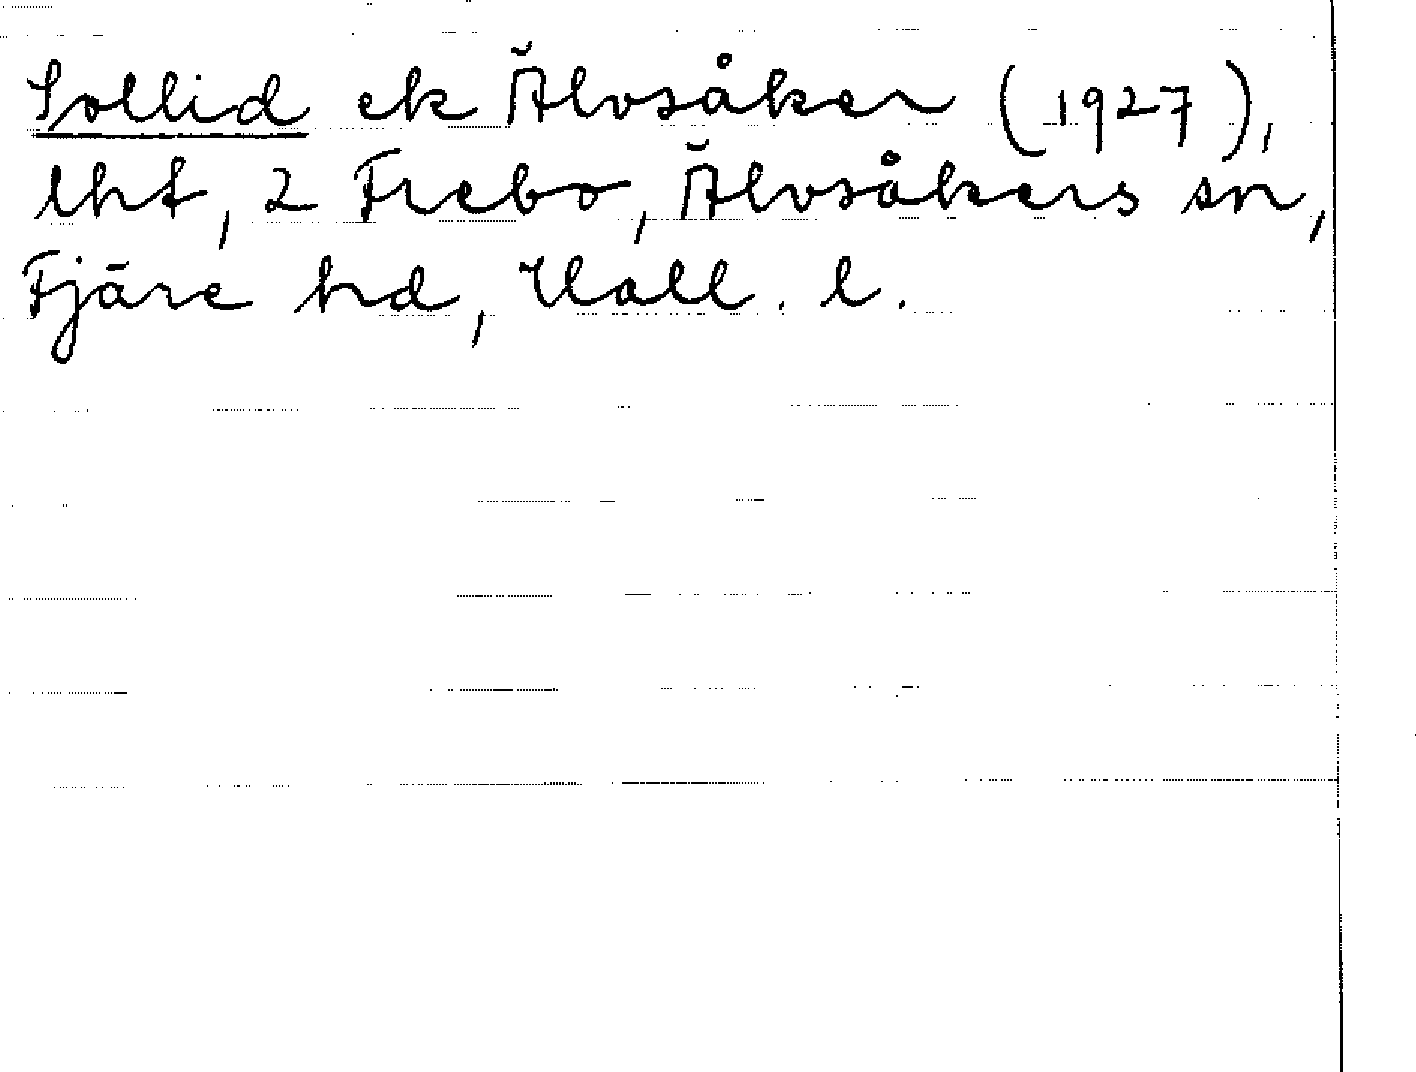 Sollid ek Älvsåker (1927),
lht, 2 Frebo, Älvsåkers sn,
Fjäre hd, Hall. l.